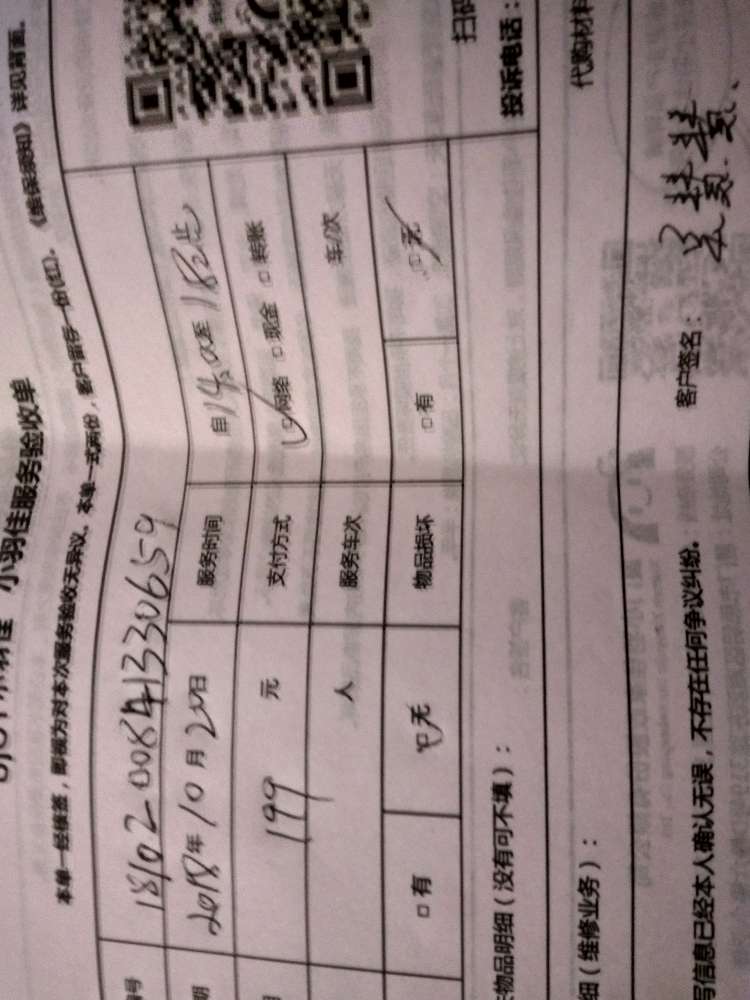 小羽佳服务验收单
本单一经填签，即视为对本次服务验收无异议。本单一式两份，客户留存一份(红)。《维保须知》详见背面。
编号 181020084133 0659
期 2018年10月20日 服务时间 自14:00至18:00止
199元 支付方式 □网络 □现金 □转账
人 服务车次 车/次
□有 □无 物品损坏 □有 □无
扫码
投诉电话：
物品明细（没有可不填）：
代购材料
细（维修业务）：
写信息已经本人确认无误，不存在任何争议纠纷。 客户签名：